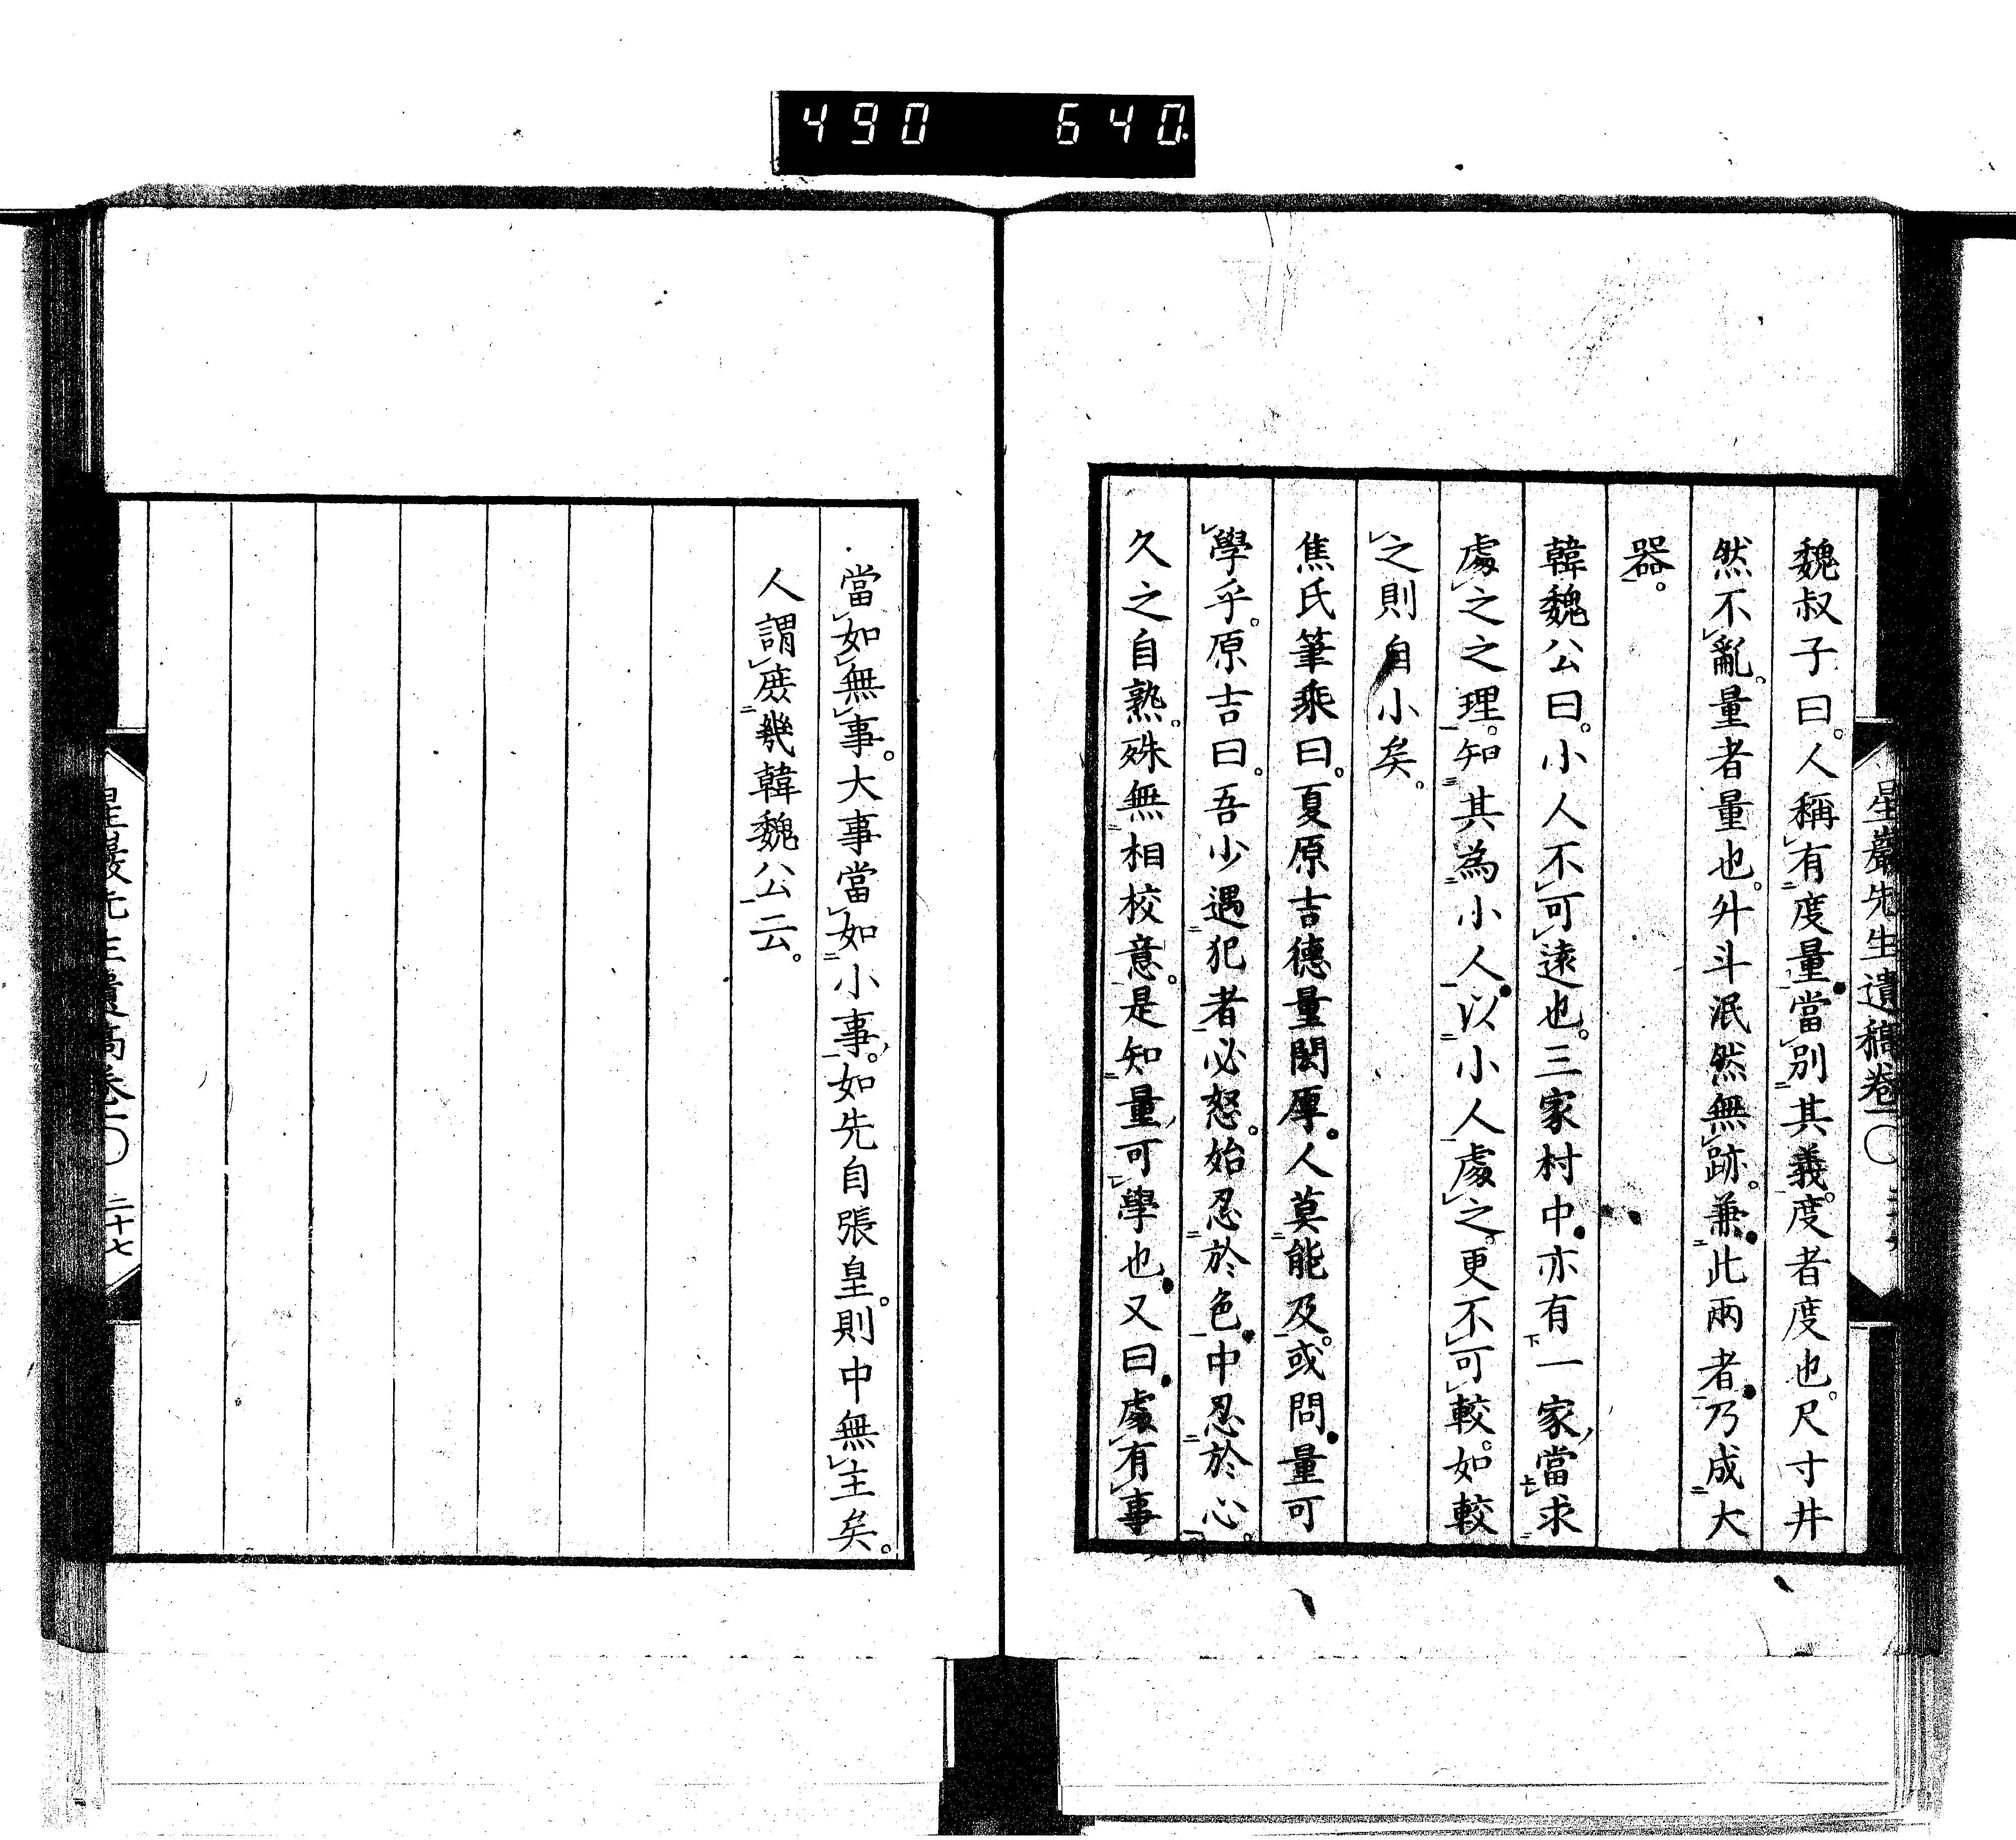 490 640
星巖先生遺稿卷一〇
魏叔子曰。人稱有度量。當別其義。度者度也。尺寸井
然不亂。量者量也。升斗泯然無跡。兼此兩者。乃成大
器。
韓魏公曰。小人不可遠也。三家村中。亦有一家。當求
處之之理。知其為小人。以小人處之。更不可較。如較
之則自小矣。
焦氏筆乘曰。夏原吉德量閎厚。人莫能及。或問。量可
學乎。原吉曰。吾少遇犯者必怒。始忍於色。中忍於心。
久之自熟。殊無相校意。是知量可學也。又曰。處有事
當如無事。大事當如小事。如先自張皇。則中無主矣。
人謂庶幾韓魏公云。
星巖先生遺稿卷一〇 二十七